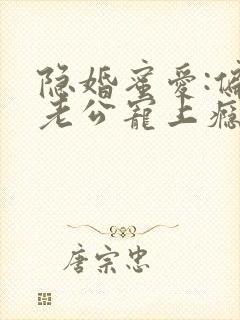 隐婚蜜爱:偏
老公宠上瘾
唐宗忠